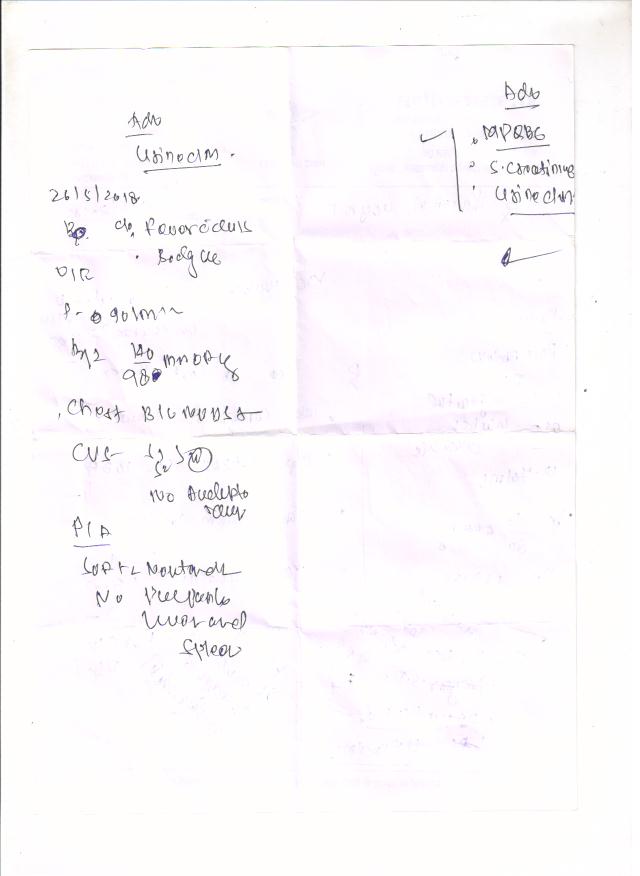 Adv
Urine c/m.
26/5/2018
c/o Fever & chills
. Bodyache
O/E
P- 90/min
140
mm of Hg
98
. Chest B/L NVBS+
CVS- S1 S2 N
No
P/A
Soft Nontender
No Palpable
liver and
spleen
Adv
. MPQBC
. S. Creatinine
. Urine c/m